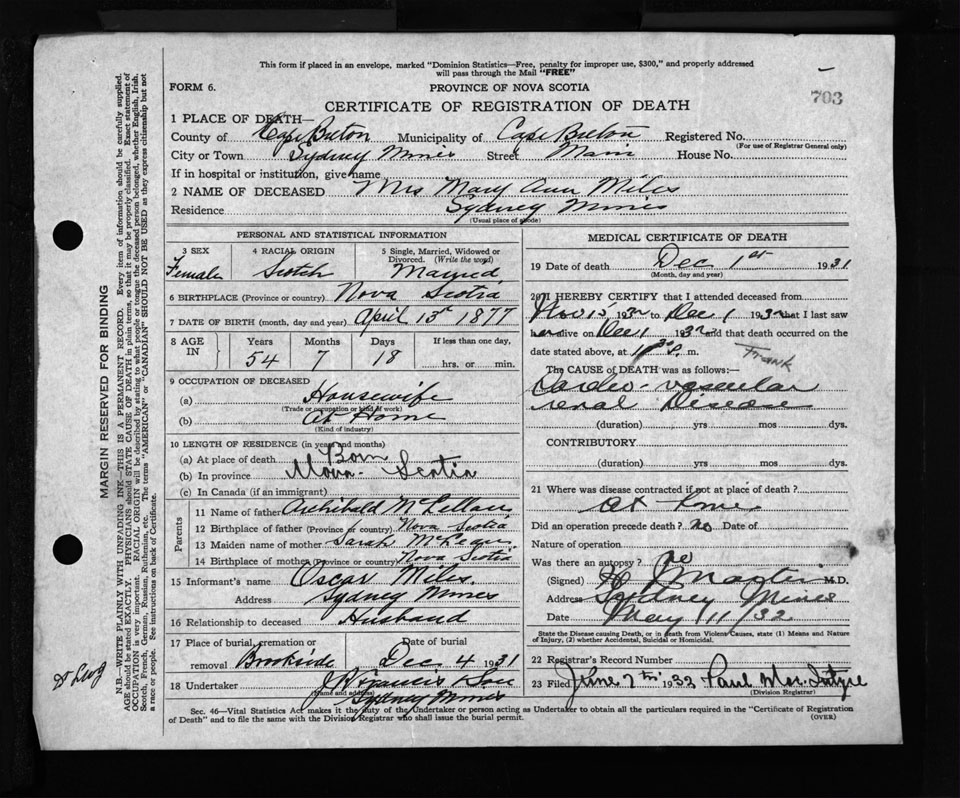 This form if placed in an envelope, marked "Dominion Statistics—Free, penalty for improper use, $300," and properly addressed
will pass through the Mail "FREE"
FORM 6.
PROVINCE OF NOVA SCOTIA
703
CERTIFICATE OF REGISTRATION OF DEATH
1 PLACE OF DEATH—
County of Cape Breton Municipality of Cape Breton Registered No.
(For use of Registrar General only)
City or Town Sydney Mines Street Main House No.
If in hospital or institution, give name
2 NAME OF DECEASED Mrs Mary Ann Miles
Residence Sydney Mines
(Usual place of abode)
PERSONAL AND STATISTICAL INFORMATION
3 SEX Female
4 RACIAL ORIGIN Scotch
5 Single, Married, Widowed or Divorced. (Write the word) Married
6 BIRTHPLACE (Province or country) Nova Scotia
7 DATE OF BIRTH (month, day and year) April 13th 1877
8 AGE IN Years Months Days If less than one day,
54 7 18 hrs. or min.
9 OCCUPATION OF DECEASED
(a) Housewife
(Trade or occupation or kind of work)
(b) At Home
(Kind of industry)
10 LENGTH OF RESIDENCE (in years and months)
(a) At place of death Born
(b) In province Nova Scotia
(c) In Canada (if an immigrant)
Parents
11 Name of father Archibald McLellan
12 Birthplace of father (Province or country) Nova Scotia
13 Maiden name of mother Sarah
14 Birthplace of mother (Province or country) Nova Scotia
15 Informant's name Oscar Miles
Address Sydney Mines
16 Relationship to deceased Husband
17 Place of burial, cremation or removal Brookside
Date of burial Dec 4 1931
18 Undertaker Francis Son
(Name and address)
Sydney Mines
MEDICAL CERTIFICATE OF DEATH
19 Date of death Dec 1st 1931
(Month, day and year)
20 I HEREBY CERTIFY that I attended deceased from
Nov 15 193 to Dec 1 193 that I last saw
her alive on Dec 1 193 and that death occurred on the
date stated above, at m.
Frank
The CAUSE of DEATH was as follows:—
Cardio-vascular
renal Disease
(duration) yrs mos dys.
CONTRIBUTORY
(duration) yrs mos dys.
21 Where was disease contracted if not at place of death?
At home
Did an operation precede death? no Date of
Nature of operation
Was there an autopsy? no
(Signed) M.D.
Address Sydney Mines
Date May 11/32
State the Disease causing Death, or in death from Violent Causes, state (1) Means and Nature
of Injury, (2) whether Accidental, Suicidal or Homicidal.
22 Registrar's Record Number
23 Filed June 7th 1932 Paul
(Division Registrar)
Sec. 46—Vital Statistics Act makes it the duty of the Undertaker or person acting as Undertaker to obtain all the particulars required in the "Certificate of Registration
of Death" and to file the same with the Division Registrar who shall issue the burial permit.
(OVER)
MARGIN RESERVED FOR BINDING
N.B.—WRITE PLAINLY WITH UNFADING INK—THIS IS A PERMANENT RECORD. Every item of information should be carefully supplied.
AGE should be stated EXACTLY. PHYSICIANS should STATE CAUSE OF DEATH in plain terms, so that it may be properly classified. Exact statement of
OCCUPATION is very important. RACIAL ORIGIN will be described by stating to what people or tongue the deceased person belonged, whether English, Irish,
Scotch, French, German, Russian, Ruthenian, etc. The terms "AMERICAN" or "CANADIAN" SHOULD NOT BE USED as they express citizenship but not
a race or people. See instructions on back of Certificate.